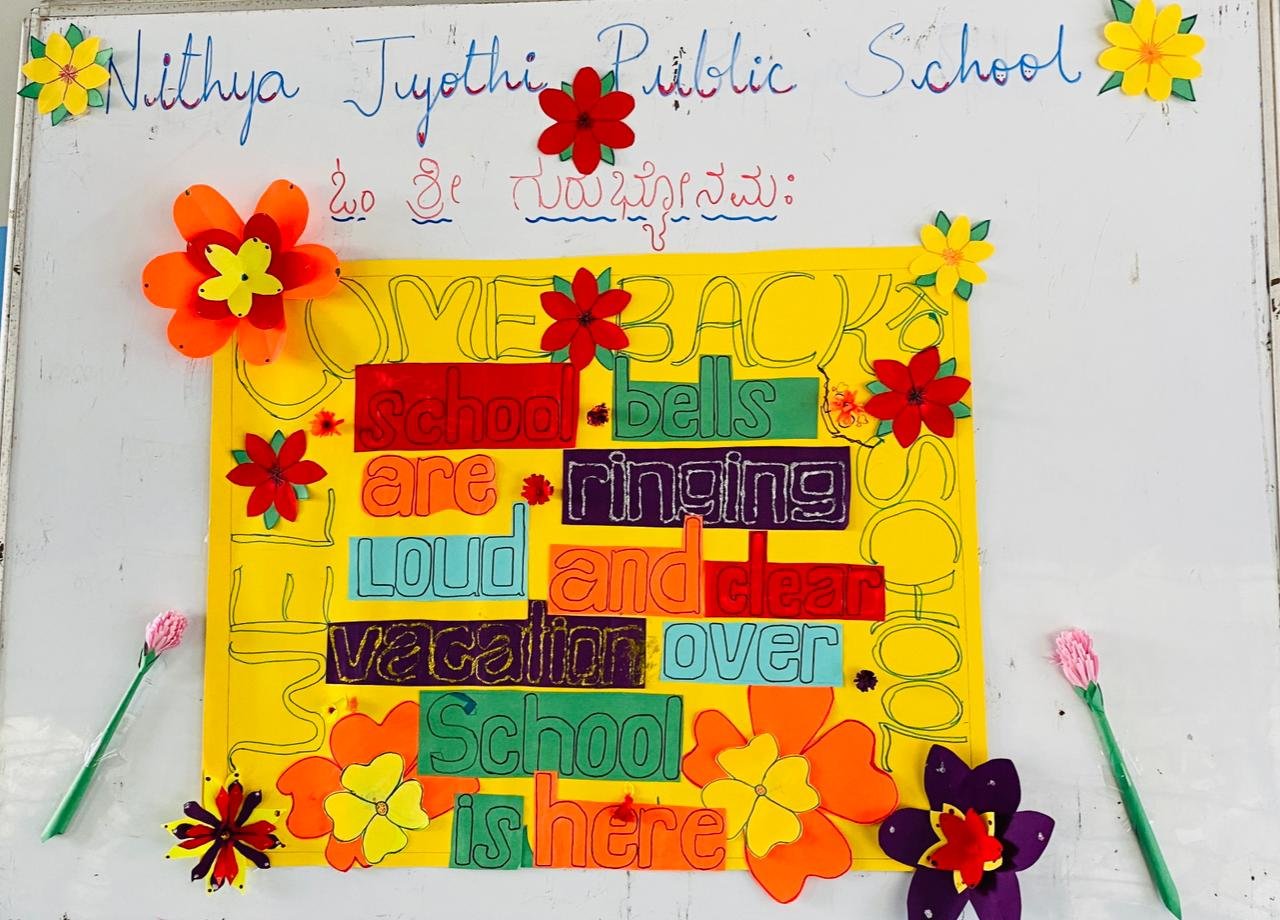 Nithya Jyothi Public School
ಓಂ ಶ್ರೀ ಗುರುಭ್ಯೋನಮಃ
WELCOME BACK To SCHOOL
school bells
are ringing
Loud and clear
vacation over
School
is here